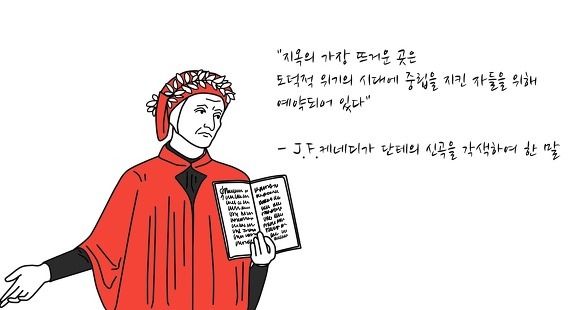 "지옥의 가장 뜨거운 곳은
도덕적 위기의 시대에 중립을 지킨 자들을 위해
예약되어 있다"
- J.F.케네디가 단테의 신곡을 각색하여 한 말